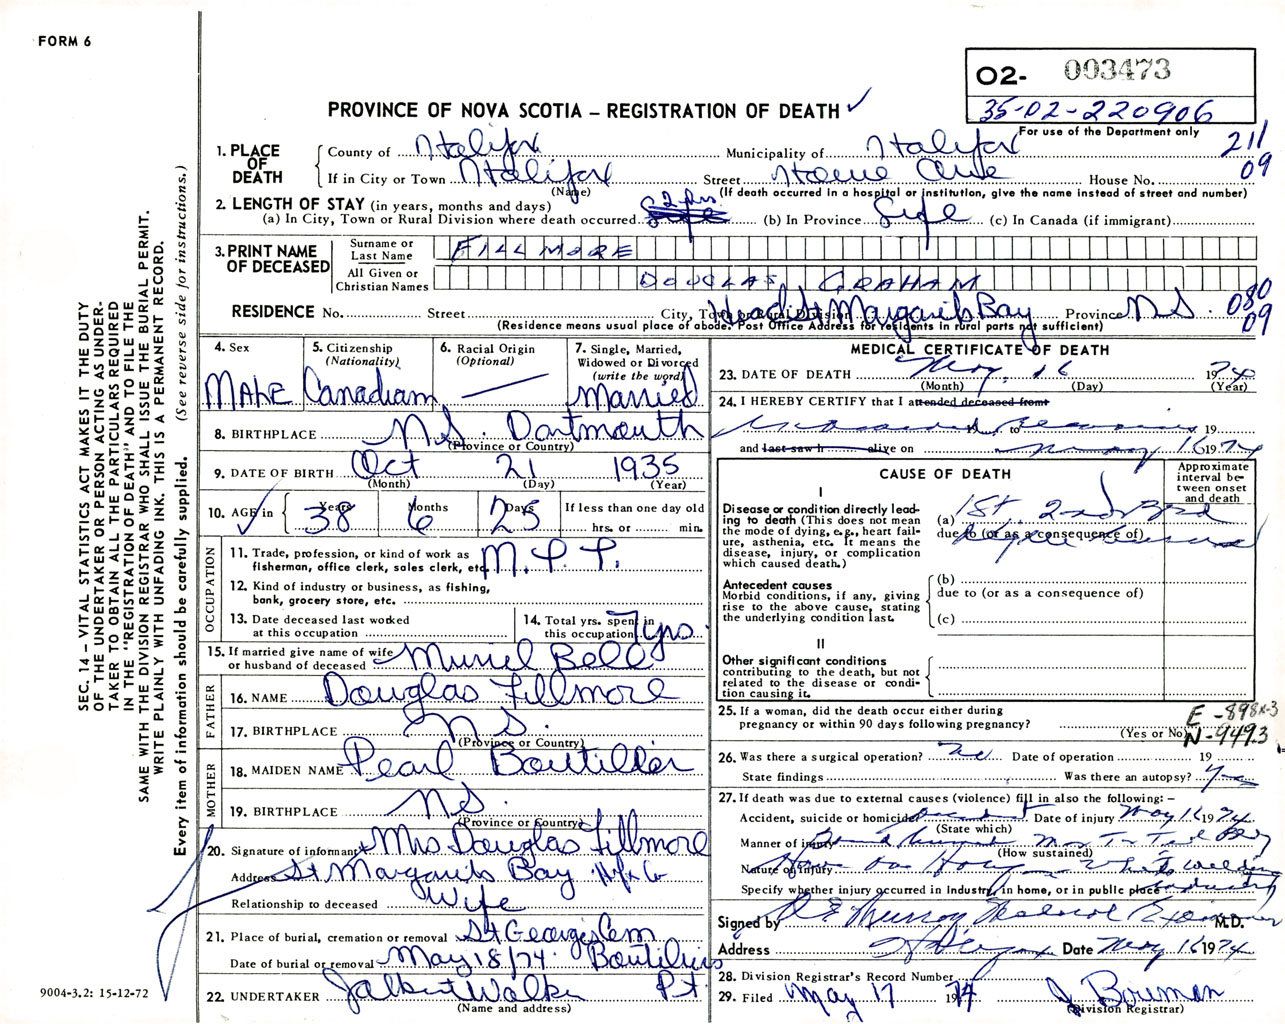 FORM 6
O2- 003473
35-02-220906
For use of the Department only
211
09
PROVINCE OF NOVA SCOTIA – REGISTRATION OF DEATH ✓
1. PLACE OF DEATH
County of Halifax Municipality of Halifax
If in City or Town Halifax Street House No.
(Name) (If death occurred in a hospital or institution, give the name instead of street and number)
2. LENGTH OF STAY (in years, months and days)
(a) In City, Town or Rural Division where death occurred (b) In Province Life (c) In Canada (if immigrant)
3. PRINT NAME OF DECEASED
Surname or Last Name FILLMORE
All Given or Christian Names DOUGLAS GRAHAM
RESIDENCE No. Street City, Town or Rural Division Head St Margarets Bay Province N.S. 080
09
(Residence means usual place of abode. Post Office Address for residents in rural parts not sufficient)
4. Sex MALE
5. Citizenship (Nationality) Canadian
6. Racial Origin (Optional) —
7. Single, Married, Widowed or Divorced (write the word) Married
8. BIRTHPLACE N.S. Dartmouth
(Province or Country)
9. DATE OF BIRTH Oct 21 1935
(Month) (Day) (Year)
10. AGE in Years 38 Months 6 Days 25 If less than one day old
hrs. or min.
OCCUPATION
11. Trade, profession, or kind of work as fisherman, office clerk, sales clerk, etc.
12. Kind of industry or business, as fishing, bank, grocery store, etc.
13. Date deceased last worked at this occupation
14. Total yrs. spent in this occupation 7 yrs.
15. If married give name of wife or husband of deceased Muriel Bell
FATHER
16. NAME Douglas Fillmore
17. BIRTHPLACE N.S.
(Province or Country)
MOTHER
18. MAIDEN NAME Pearl Boutilier
19. BIRTHPLACE N.S.
(Province or Country)
20. Signature of informant Mrs Douglas Fillmore
Address St Margarets Bay Hfx Co
Relationship to deceased Wife
21. Place of burial, cremation or removal St Georges Cem
Date of burial or removal May 18/74 Boutiliers Pt.
22. UNDERTAKER
(Name and address)
MEDICAL CERTIFICATE OF DEATH
23. DATE OF DEATH May 16 1974
(Month) (Day) (Year)
24. I HEREBY CERTIFY that I attended deceased from
19 to 19
and last saw h alive on May 16 1974
CAUSE OF DEATH
Approximate interval between onset and death
I
Disease or condition directly leading to death (This does not mean the mode of dying, e.g., heart failure, asthenia, etc. It means the disease, injury, or complication which caused death.)
(a) 1st 2nd 3rd
due to (or as a consequence of)
Antecedent causes
Morbid conditions, if any, giving rise to the above cause, stating the underlying condition last.
(b)
due to (or as a consequence of)
(c)
II
Other significant conditions contributing to the death, but not related to the disease or condition causing it.
25. If a woman, did the death occur either during pregnancy or within 90 days following pregnancy?
(Yes or No)
E-898x-3
N-9493
26. Was there a surgical operation? no Date of operation 19
State findings Was there an autopsy? Yes
27. If death was due to external causes (violence) fill in also the following: –
Accident, suicide or homicide Accident Date of injury May 16 1974
(State which)
Manner of injury
(How sustained)
Nature of injury
Specify whether injury occurred in industry, in home, or in public place Industry
Signed by R E Murray Medical Examiner M.D.
Address Halifax Date May 16 1974
28. Division Registrar's Record Number
29. Filed May 17 1974 J Bowman
(Division Registrar)
SEC. 14 – VITAL STATISTICS ACT MAKES IT THE DUTY
OF THE UNDERTAKER OR PERSON ACTING AS UNDER-
TAKER TO OBTAIN ALL THE PARTICULARS REQUIRED
IN THE "REGISTRATION OF DEATH" AND TO FILE THE
SAME WITH THE DIVISION REGISTRAR WHO SHALL ISSUE THE BURIAL PERMIT.
WRITE PLAINLY WITH UNFADING INK. THIS IS A PERMANENT RECORD.
Every item of information should be carefully supplied. (See reverse side for instructions.)
9004-3.2: 15-12-72